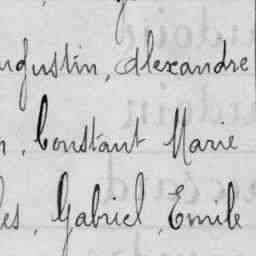 ugustin, Alexandre
n, Constant Marie
les, Gabriel, Emile